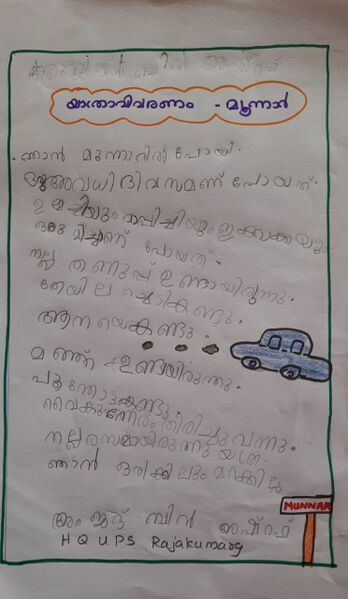 യാത്രാവിവരണം - മൂന്നാർ
ഞാൻ മൂന്നാറിൽ പോയി.
ഒരു അവധി ദിവസമണ് പോയത്.
ഉമ്മച്ചിയും വാപ്പിച്ചിയും ഇക്കാക്കയും
ഒരുമിച്ചാണ് പോയത്.
നല്ല തണുപ്പ് ഉണ്ടായിരുന്നു.
തേയില ചെടികണ്ടു.
ആനയെകണ്ടു.
മഞ്ഞ് ഉണ്ടയിരുന്നു.
പൂന്തോട്ടംകണ്ടു.
വൈകുന്നേരം തിരിച്ചുവന്നു.
നല്ലരസമായിരുന്നു യത്ര.
ഞാൻ ഒരിക്കലും മറക്കില്ല
MUNNAR
അംജദ് ബിൻ അഷ്റഫ്
H Q U P S Rajakumarg